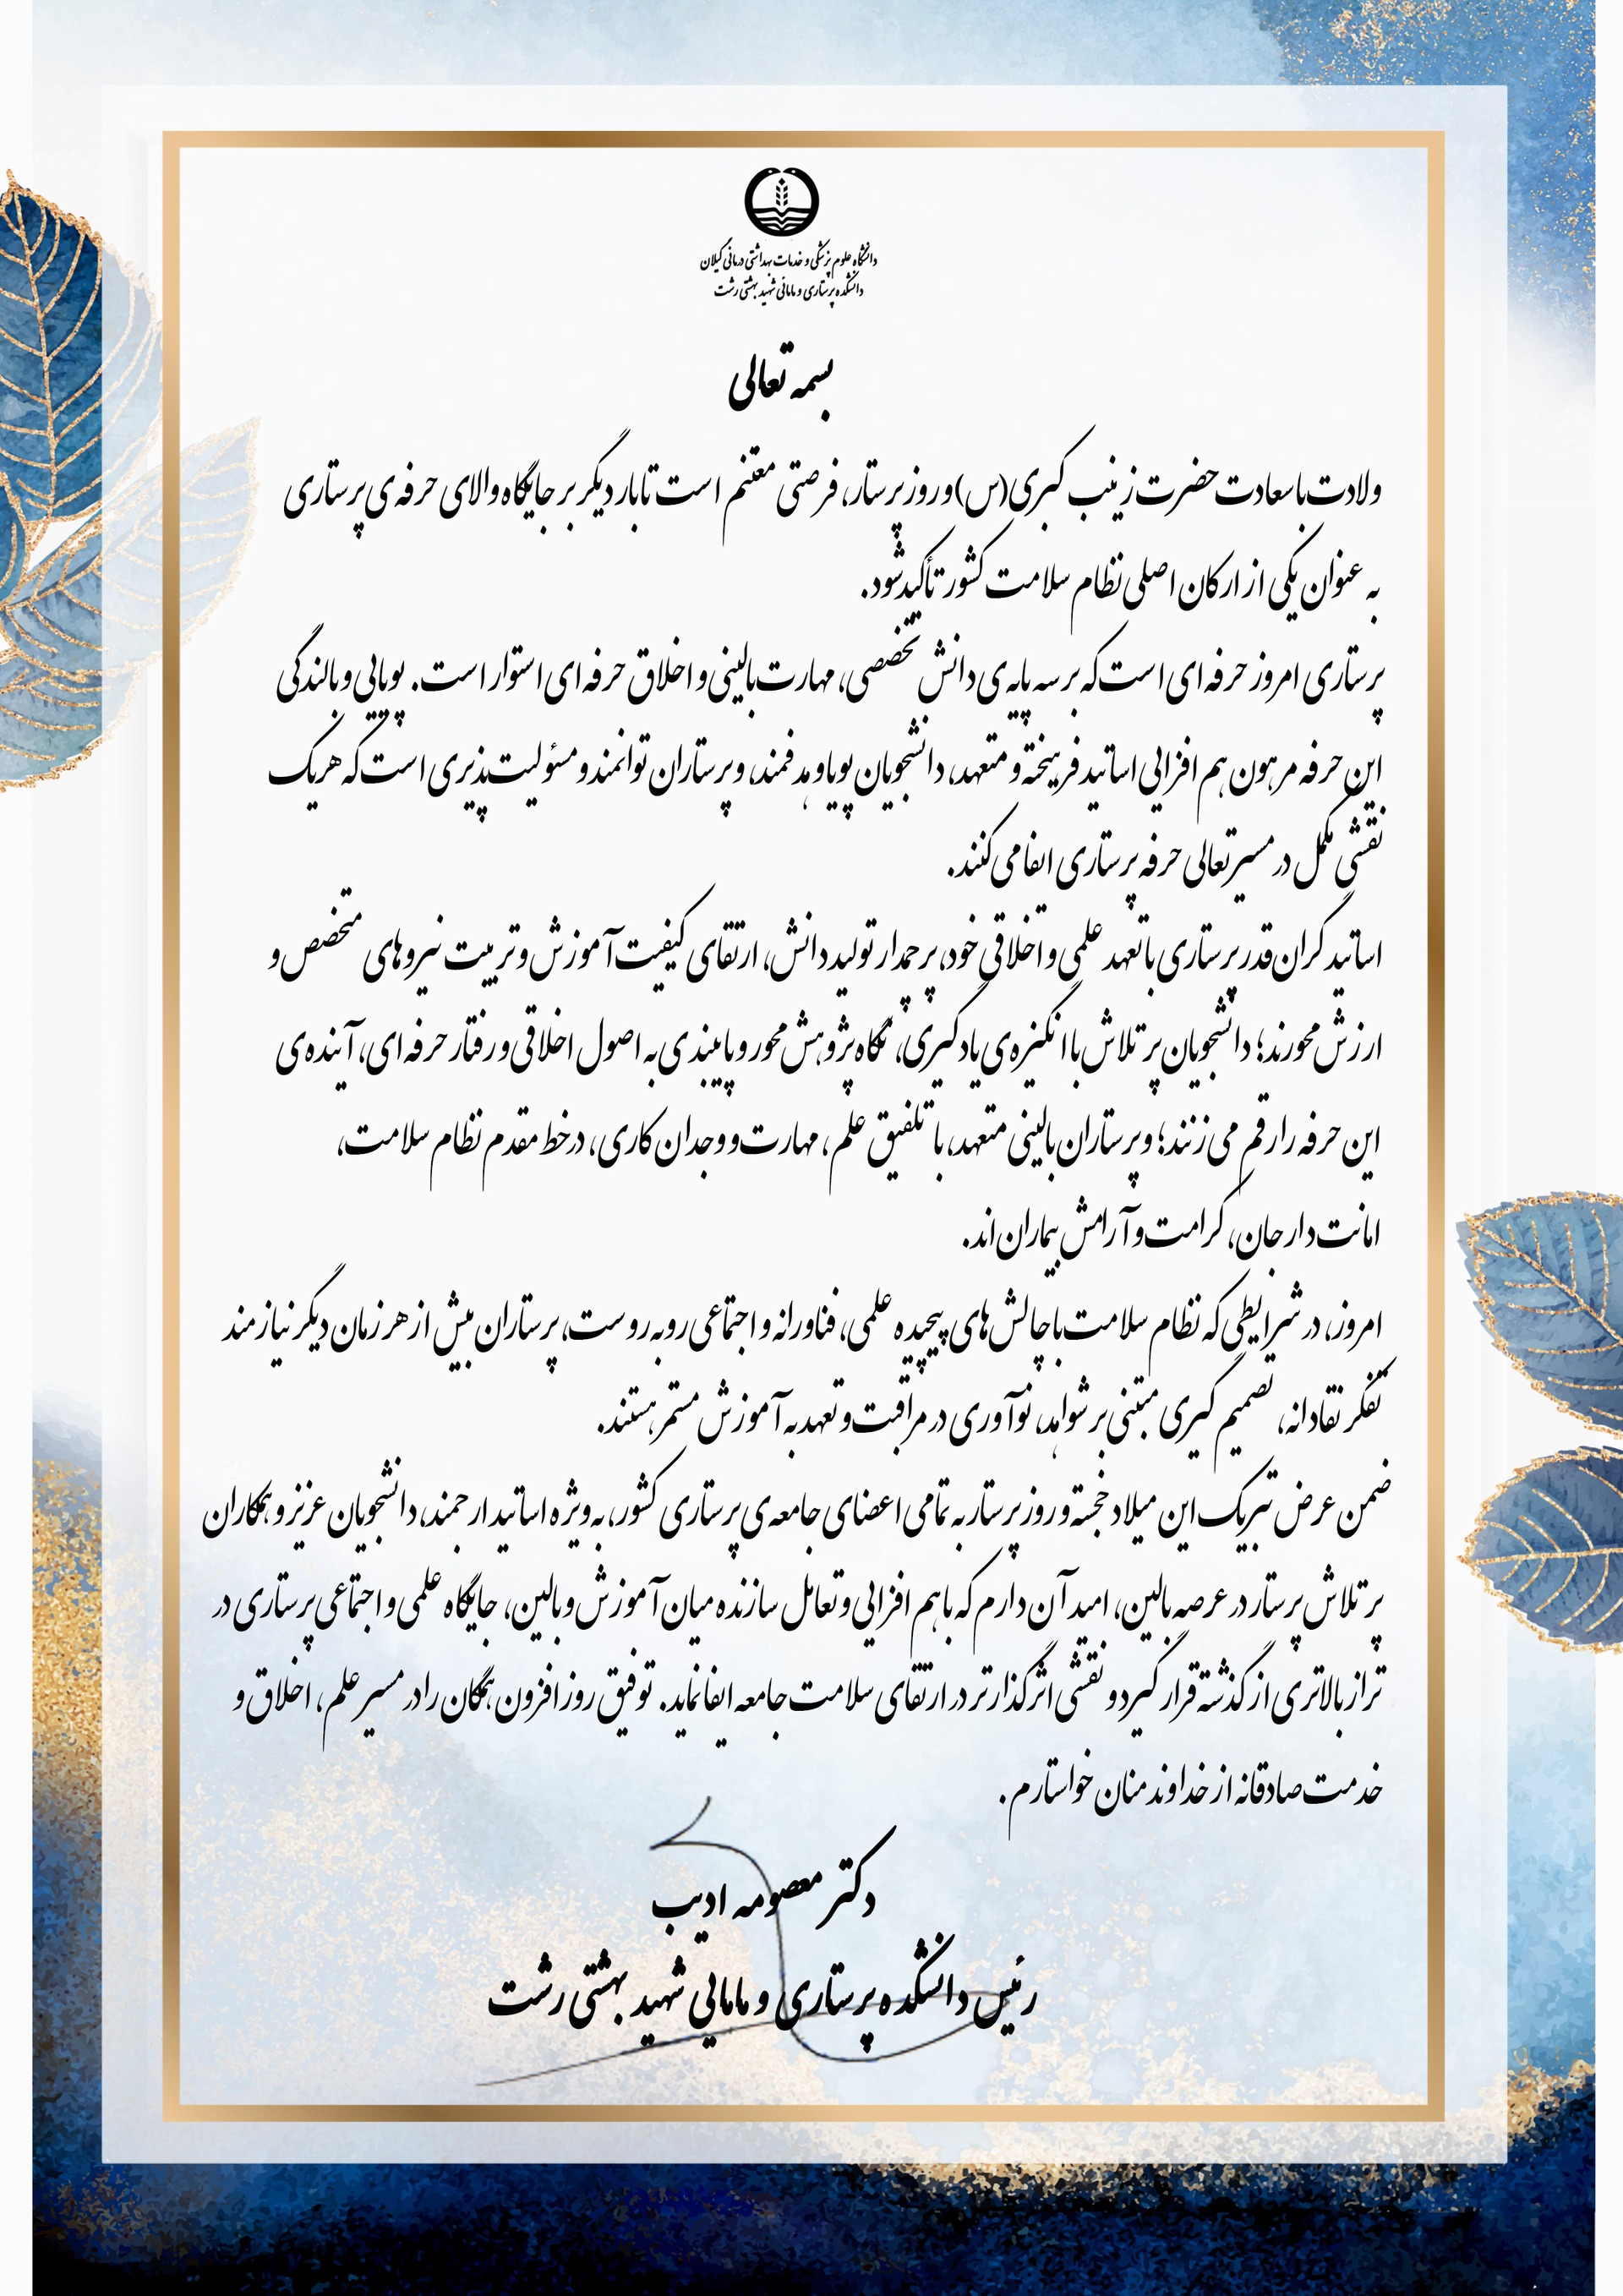 دانشگاه علوم پزشکی و خدمات بهداشتی درمانی گیلان
دانشکده پرستاری و مامایی شهید بهشتی رشت
بسمه تعالی
ولادت باسعادت حضرت زینب کبری(س) و روز پرستار، فرصتی مغتنم است تا بار دیگر بر جایگاه والای حرفه‌ی پرستاری
به عنوان یکی از ارکان اصلی نظام سلامت کشور تأکید شود.
پرستاری امروز حرفه‌ای است که بر سه پایه‌ی دانش تخصصی، مهارت بالینی و اخلاق حرفه‌ای استوار است. پویایی و بالندگی
این حرفه مرهون هم‌افزایی اساتید فریخته و متعهد، دانشجویان پویا و هدفمند، و پرستاران توانمند و مسئولیت‌پذیری است که هر یک
نقشی مکمل در مسیر تعالی حرفه پرستاری ایفا می‌کنند.
اساتید گران‌قدر پرستاری با تعهد علمی و اخلاقی خود، پرچمدار تولید دانش، ارتقای کیفیت آموزش و تربیت نیروهای متخصص و
ارزش‌محورند؛ دانشجویان پرتلاش با انگیزه‌ی یادگیری، نگاه پژوهش‌محور و پایبندی به اصول اخلاقی و رفتار حرفه‌ای، آینده‌ی
این حرفه را رقم می‌زنند؛ و پرستاران بالینی متعهد، با تلفیق علم، مهارت و وجدان کاری، در خط مقدم نظام سلامت،
امانت‌دار جان، کرامت و آرامش بیماران‌اند.
امروز، در شرایطی که نظام سلامت با چالش‌های پیچیده علمی، فناورانه و اجتماعی روبه‌روست، پرستاران بیش از هر زمان دیگر نیازمند
تفکر نقادانه، تصمیم‌گیری مبتنی بر شواهد، نوآوری در مراقبت و تعهد به آموزش مستمر هستند.
ضمن عرض تبریک این میلاد خجسته و روز پرستار به تمامی اعضای جامعه‌ی پرستاری کشور، به ویژه اساتید ارجمند، دانشجویان عزیز و همکاران
پرتلاش پرستار در عرصه بالین، امید آن دارم که با هم‌افزایی و تعامل سازنده میان آموزش و بالین، جایگاه علمی و اجتماعی پرستاری در
تراز بالاتری از گذشته قرار گیرد و نقشی اثرگذارتر در ارتقای سلامت جامعه ایفا نماید. توفیق روزافزون همگان را در مسیر علم، اخلاق و
خدمت صادقانه از خداوند منان خواستارم.
دکتر معصومه ادیب
رئیس دانشکده پرستاری و مامایی شهید بهشتی رشت